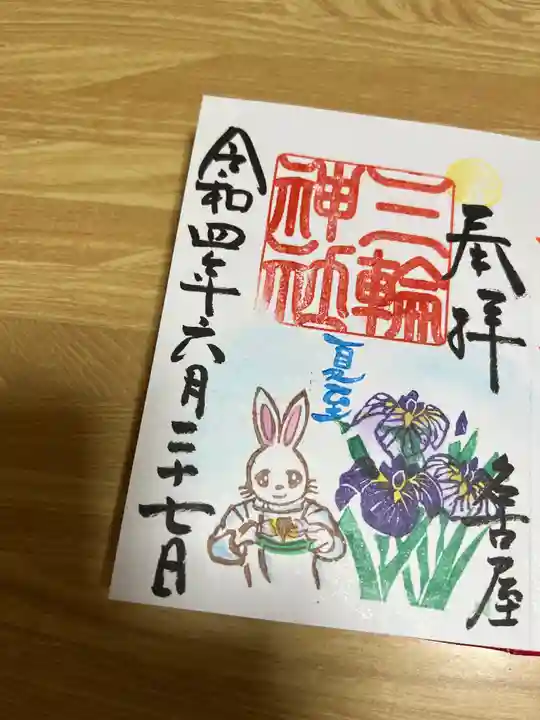 奉拝
名古屋
三輪
神社
夏至
令和四年六月二十七日